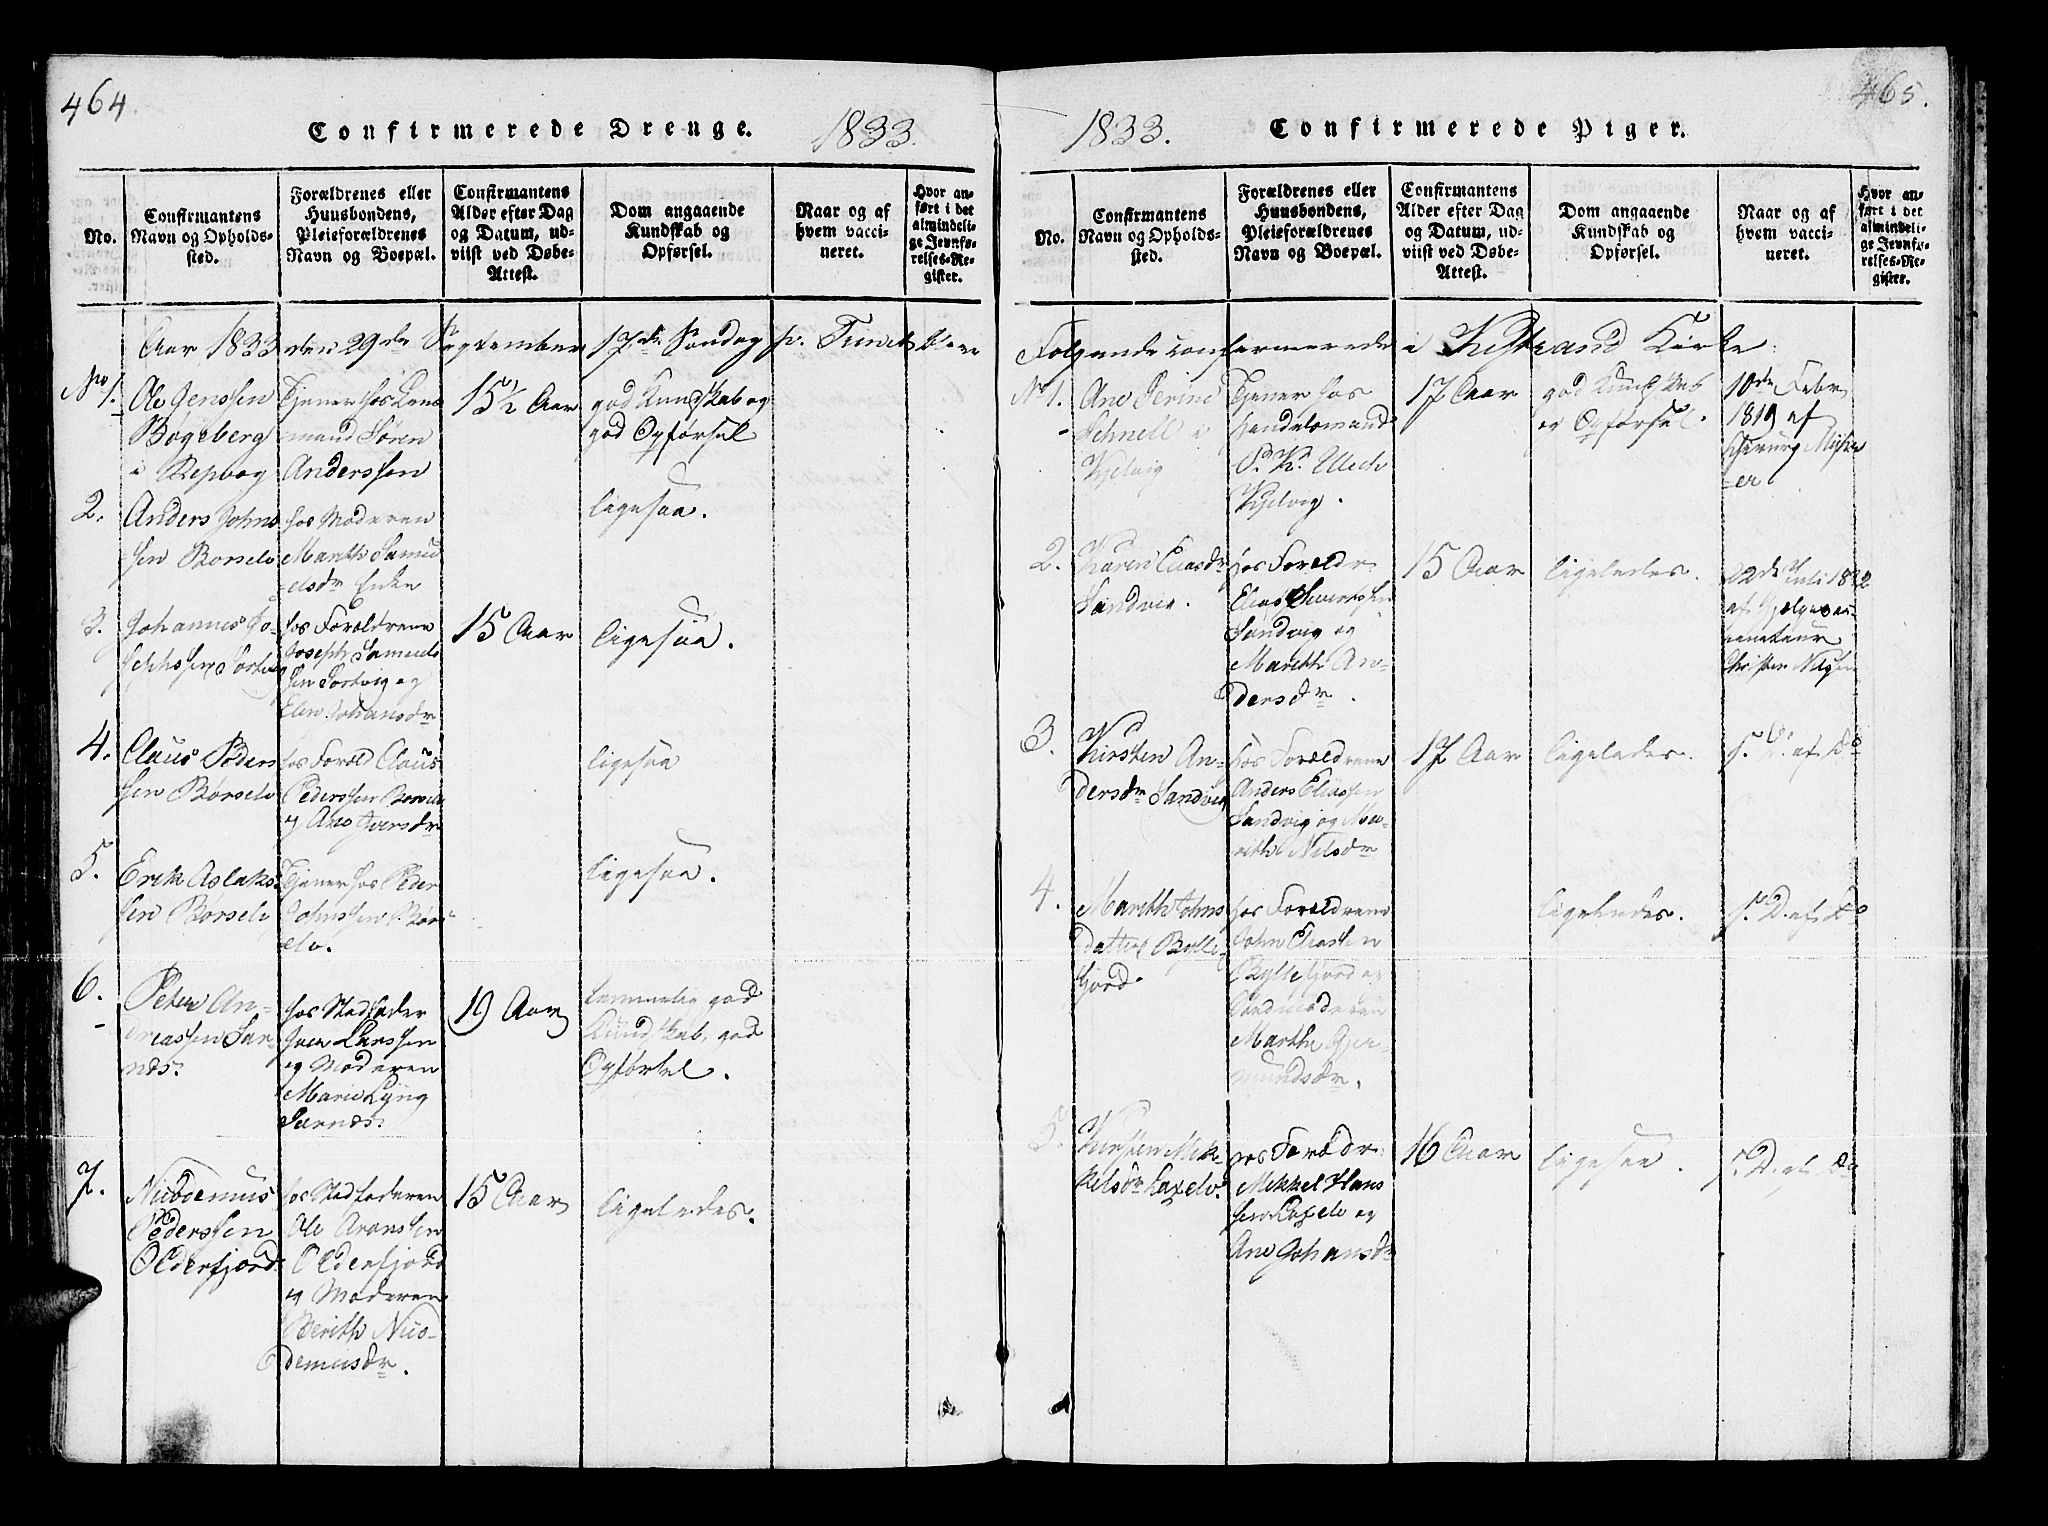 464.
Confirmerede Drenge. 1833.
No.
Confirmantens Navn og Opholds-sted.
Forældrenes eller Huusbondens, Pleieforældrenes Navn og Boepæl.
Confirmantens Alder efter Dag og Datum, ud-viist ved Døbe-Attest.
Dom angaaende Kundskab og Opførsel.
Naar og af hvem vacci-neret.
Hvor an-ført i det almindeli-ge Jevnfø-relses-Re-gister.
Aar 1833 den 29de September 17de Søndag p. Trinit
No 1.
Ole Jenssen
Bogeberg
i Repvog
Tjener hos Lens
mand Søren
Anderssen
15½ Aar
god Kundskab og
god Opførsel
2.
Anders Johns
sen Borselv
hos Moderen
Mareth Samu
elsdr
ligesaa.
3.
Johannes Jo-
sephssen Sortvig
hos Forældrene
Joseph Samuels
sen Sortvig og
Elen Johansdr
15 Aar
ligesaa.
4.
Claus Peders
sen Børselv
hos Foræld Claus
Pederssen Børselv
og Ane Iversdr
ligesaa
5.
Erik Aslaks
sen Børselv
Tjener hos Peder
Johnssen Børs
elv.
ligesaa.
6.
Peter An-
dreassen Sar-
næs.
hos Stedfader
Iver Larssen
og Moderen
Marie Lyng
Sarnæs.
19 Aar
temmelig god
Kundskab, god
Opførsel.
7.
Nicodemus
Pederssen
Olderfjord
hos Stedfaderen
Ole Aronssen
Olderfjord
og Moderen
Berith Nico-
demusdr.
15 Aar
ligeledes.
465.
1833. Confirmerede Piger.
No.
Confirmantens Navn og Opholds-sted.
Forældrenes eller Huusbondens, Pleieforældrenes Navn og Boepæl.
Confirmantens Alder efter Dag og Datum, ud-viist ved Døbe-Attest.
Dom angaaende Kundskab og Opførsel.
Naar og af hvem vacci-neret.
Hvor an-ført i det almindeli-ge Jevnfø-relses-Re-gister.
Følgende confirmerede i Kistrand Kirke:
No 1.
Ane Serine
Schnell i
Kjelvig
Tjener hos
Handelsmand
P. K. Ulech
Kjelvig.
17 Aar
god Kundskab
og Opførsel.
10de Febr
1819 af
2.
Karen Eliasdr
Sandvig.
hos Forældr
Elias Siverssen
Sandvig og
Mareth An-
dersdr.
15 Aar
ligeledes.
22de Juli 1832
af Hjelpevac-
cinateur
Christen Nilssen
3.
Kirsten An-
dersdr Sandvig
hos Forældrene
Anders Eliassen
Sandvig og Ma-
reth Nilsdr
17 Aar
ligeledes.
s. D. af Do
4.
Mareth Johns
datter Bylle-
fjord.
hos Forældrene
John Eliassen
Byllefjord og
Stedmoderen
Marthe Gjer-
mundsdr.
ligeledes.
s. D. af Do
5.
Kirsten Mik-
kelsdr Laxelv.
hos Forældr
Mikkel Hans
sen Laxelv og
Ane Johansdr
16 Aar
ligesaa.
s. D. af Do